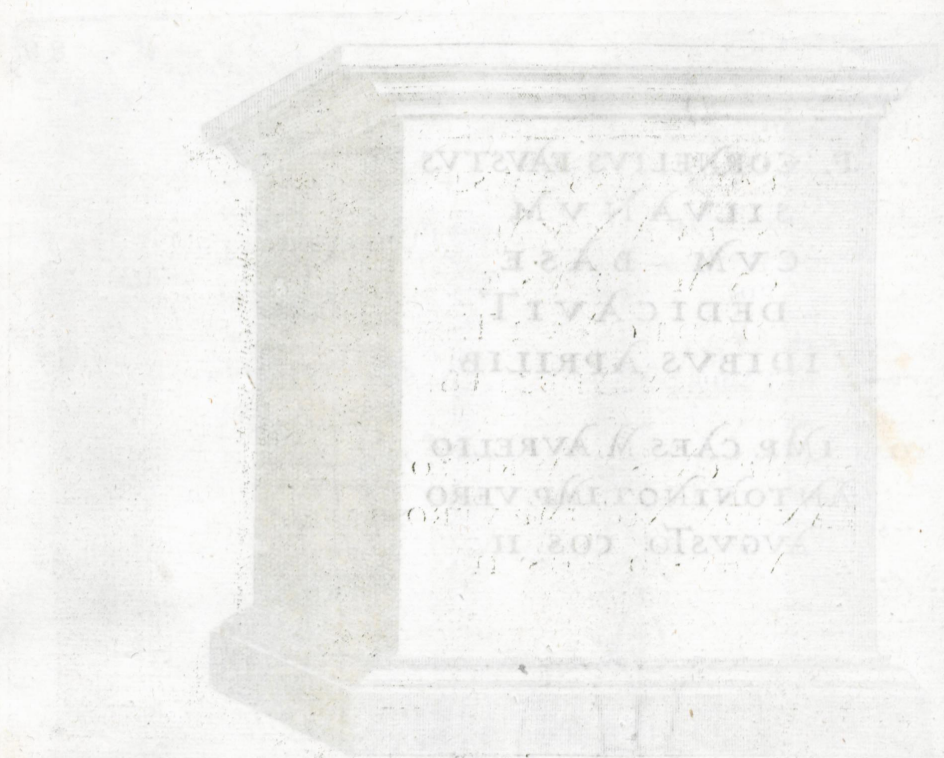 P. CORNELIVS FAVSTVS
SILVANVM
CVM BASE
DEDICAVIT
IDIBVS APRILIB
IMP. CAES. M. AVRELIO
ANTONINO IMP. VERO
AVGVSTO COS II